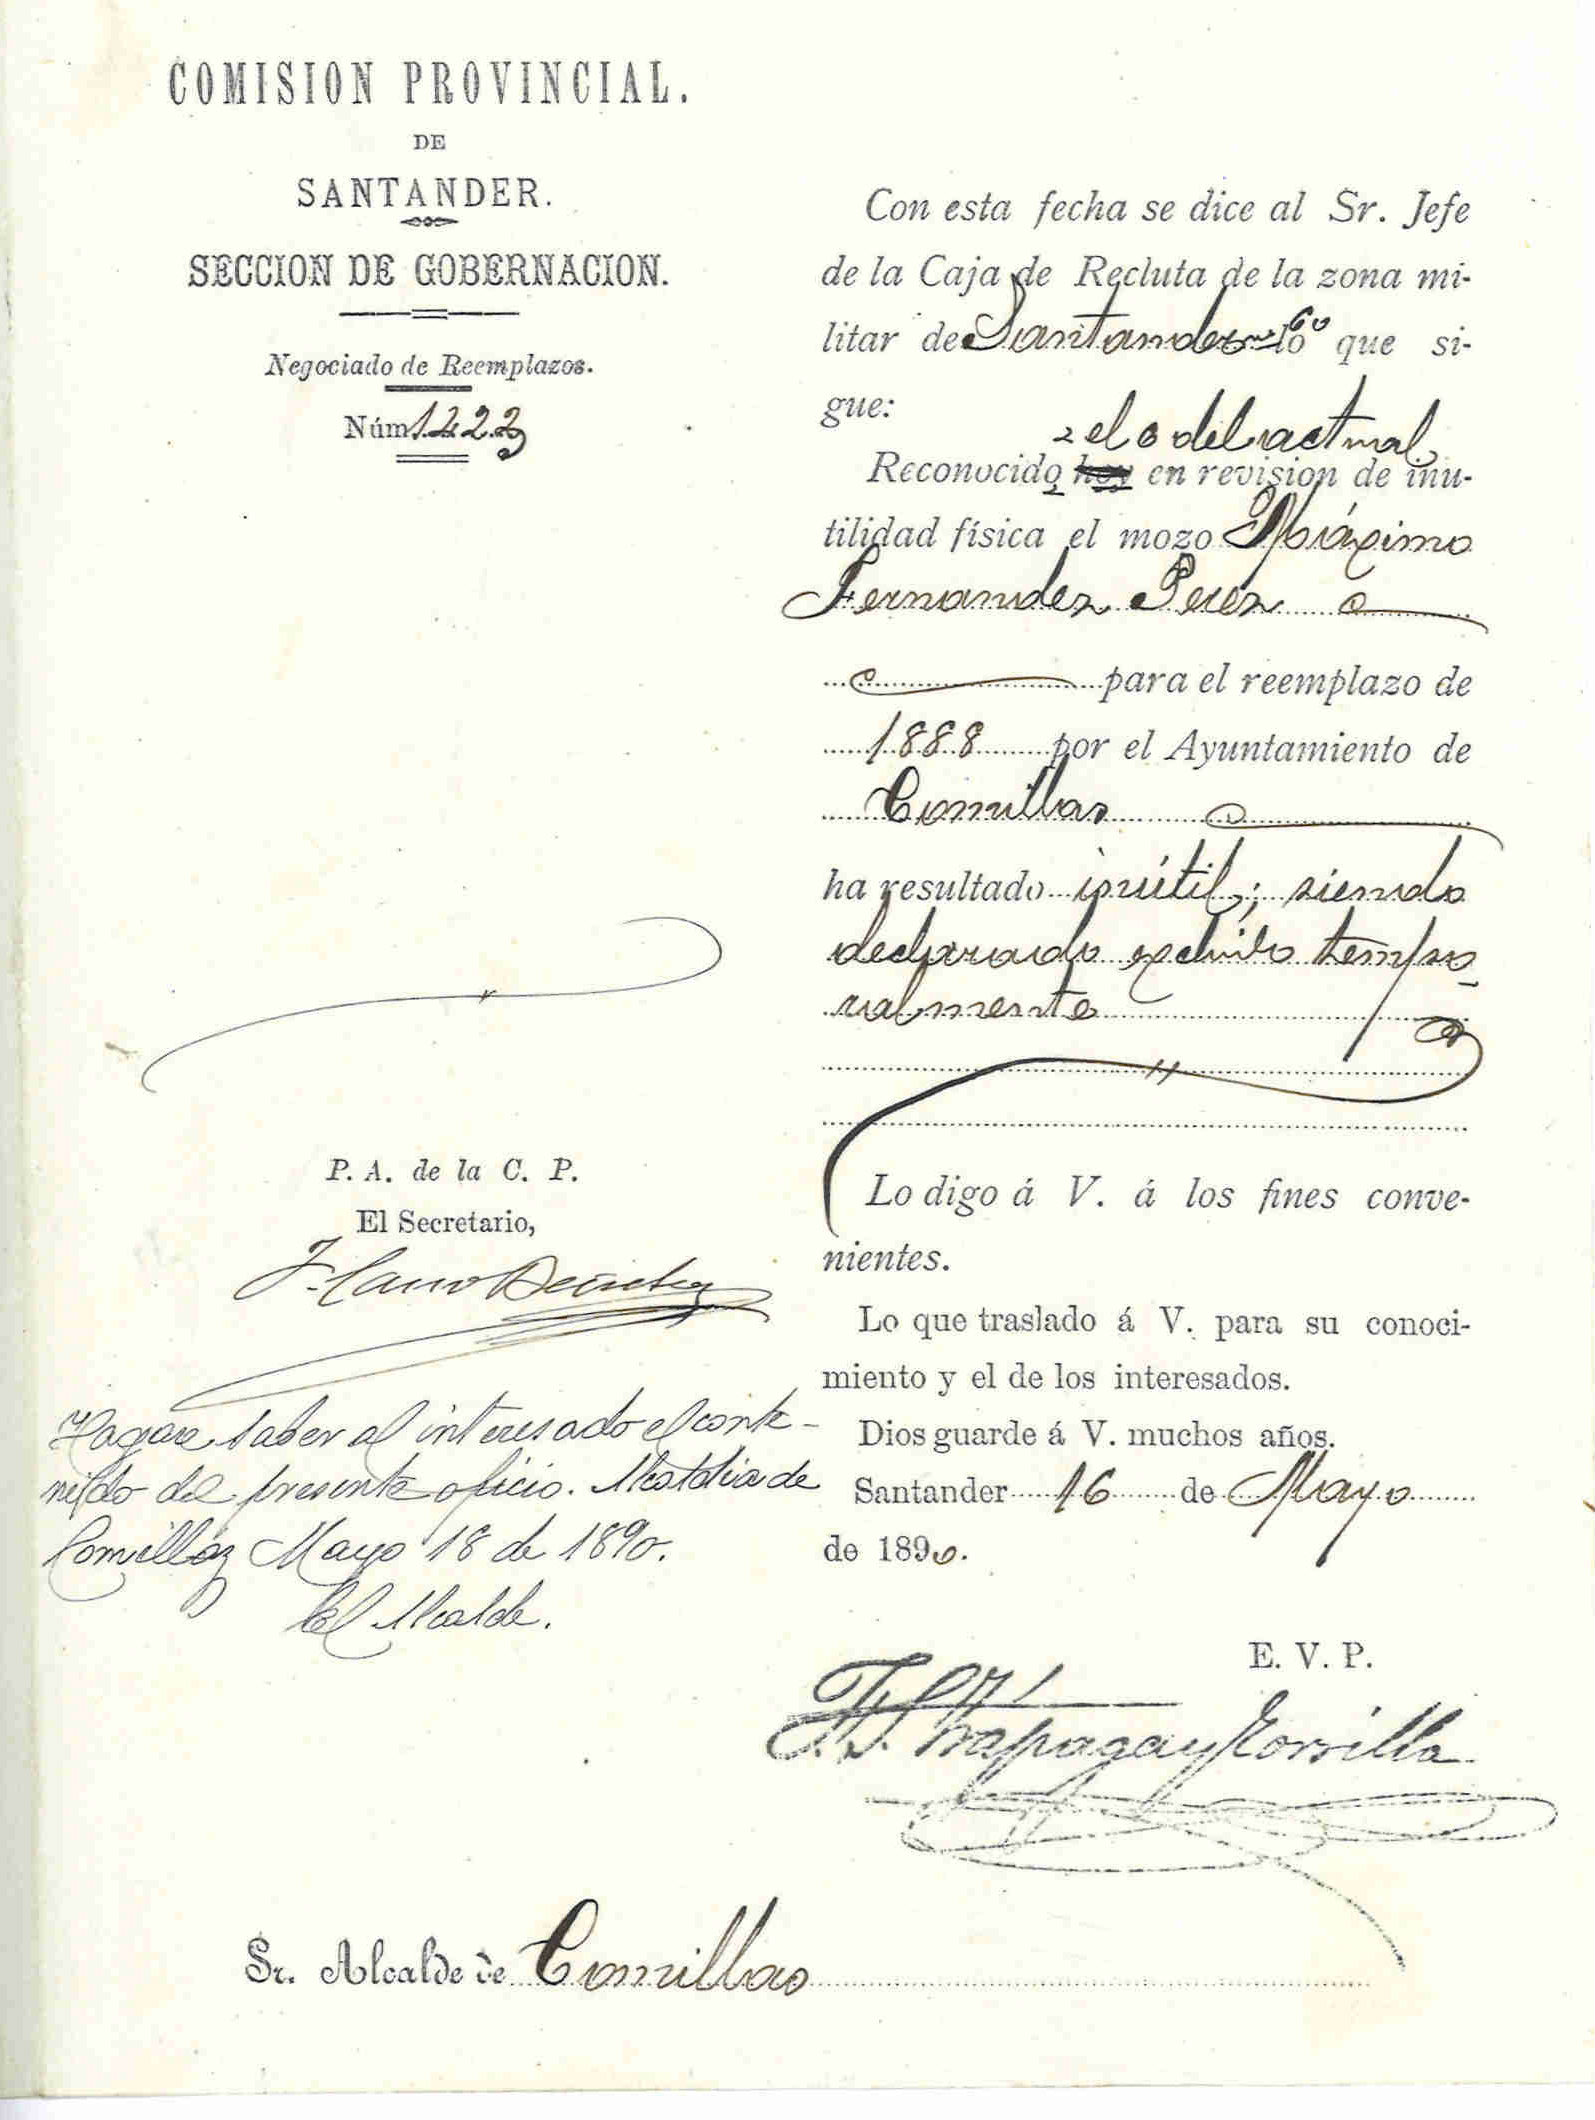 COMISION PROVINCIAL.
DE
SANTANDER.
SECCION DE GOBERNACION.
Negociado de Reemplazos.
Núm 1422
Con esta fecha se dice al Sr. Jefe
de la Caja de Recluta de la zona mi-
litar de Santander lo que si-
gue:
el 6 del actual
Reconocido hoy en revision de inu-
tilidad física el mozo Máximo
Fernandez Perez
para el reemplazo de
1888 por el Ayuntamiento de
Comillas
ha resultado inútil; siendo
declarado excluido tempo-
ralmente
Lo digo á V. á los fines conve-
nientes.
Lo que traslado á V. para su conoci-
miento y el de los interesados.
Dios guarde á V. muchos años.
Santander 16 de Mayo
de 1890.
E. V. P.
P. A. de la C. P.
El Secretario,
Hagase saber al interesado el conte-
nido del presente oficio. Alcaldia de
Comillas Mayo 18 de 1890.
El Alcalde.
Sr. Alcalde de Comillas